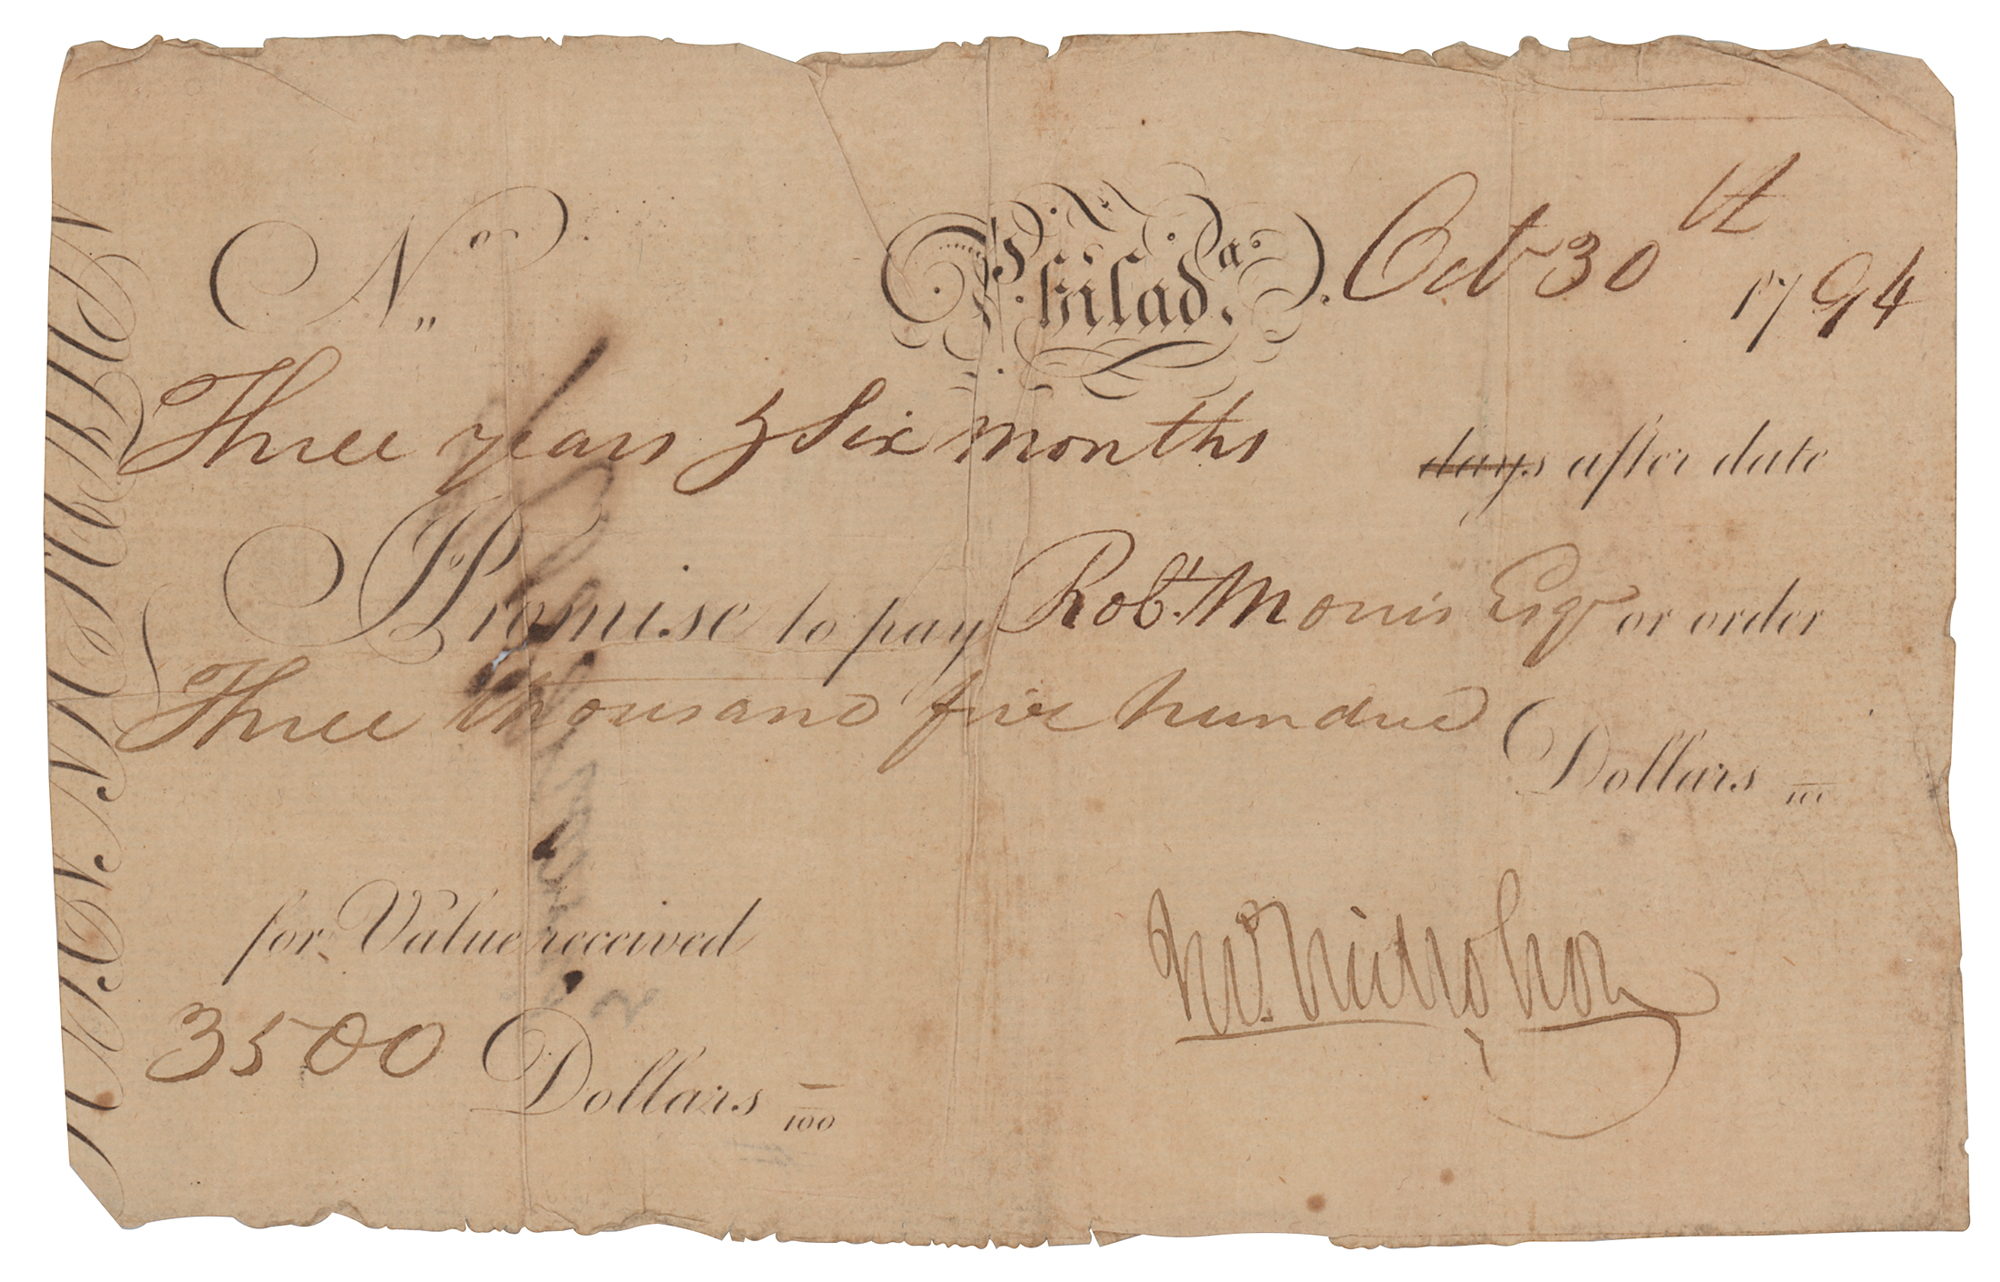 No.. Philada. Octr 30th 1794
Three years & Six months days after date
I Promise to pay Robt. Morris Esqr or order
Three thousand five hundred Dollars /100
for Value received
3500 Dollars /100
Jno. Nicholson